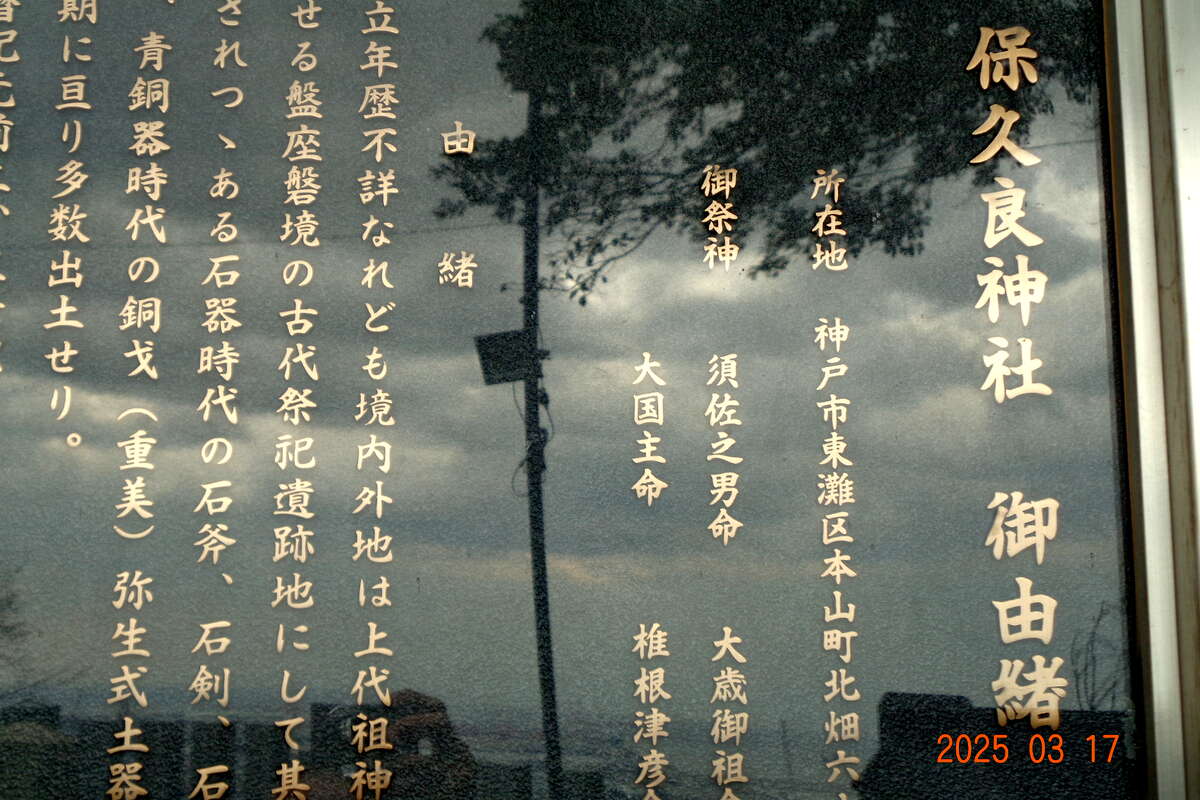 保久良神社 御由緒
所在地 神戸市東灘区本山町北畑六
御祭神 須佐之男命 大歳御祖
大国主命 椎根津彦
由緒
立年歴不詳なれども境内外地は上代祖神
せる盤座磐境の古代祭祀遺跡地にして其
されつゝある石器時代の石斧、石剣、石
、青銅器時代の銅戈（重美）弥生式土器
期に亘り多数出土せり。
元前
2025 03 17